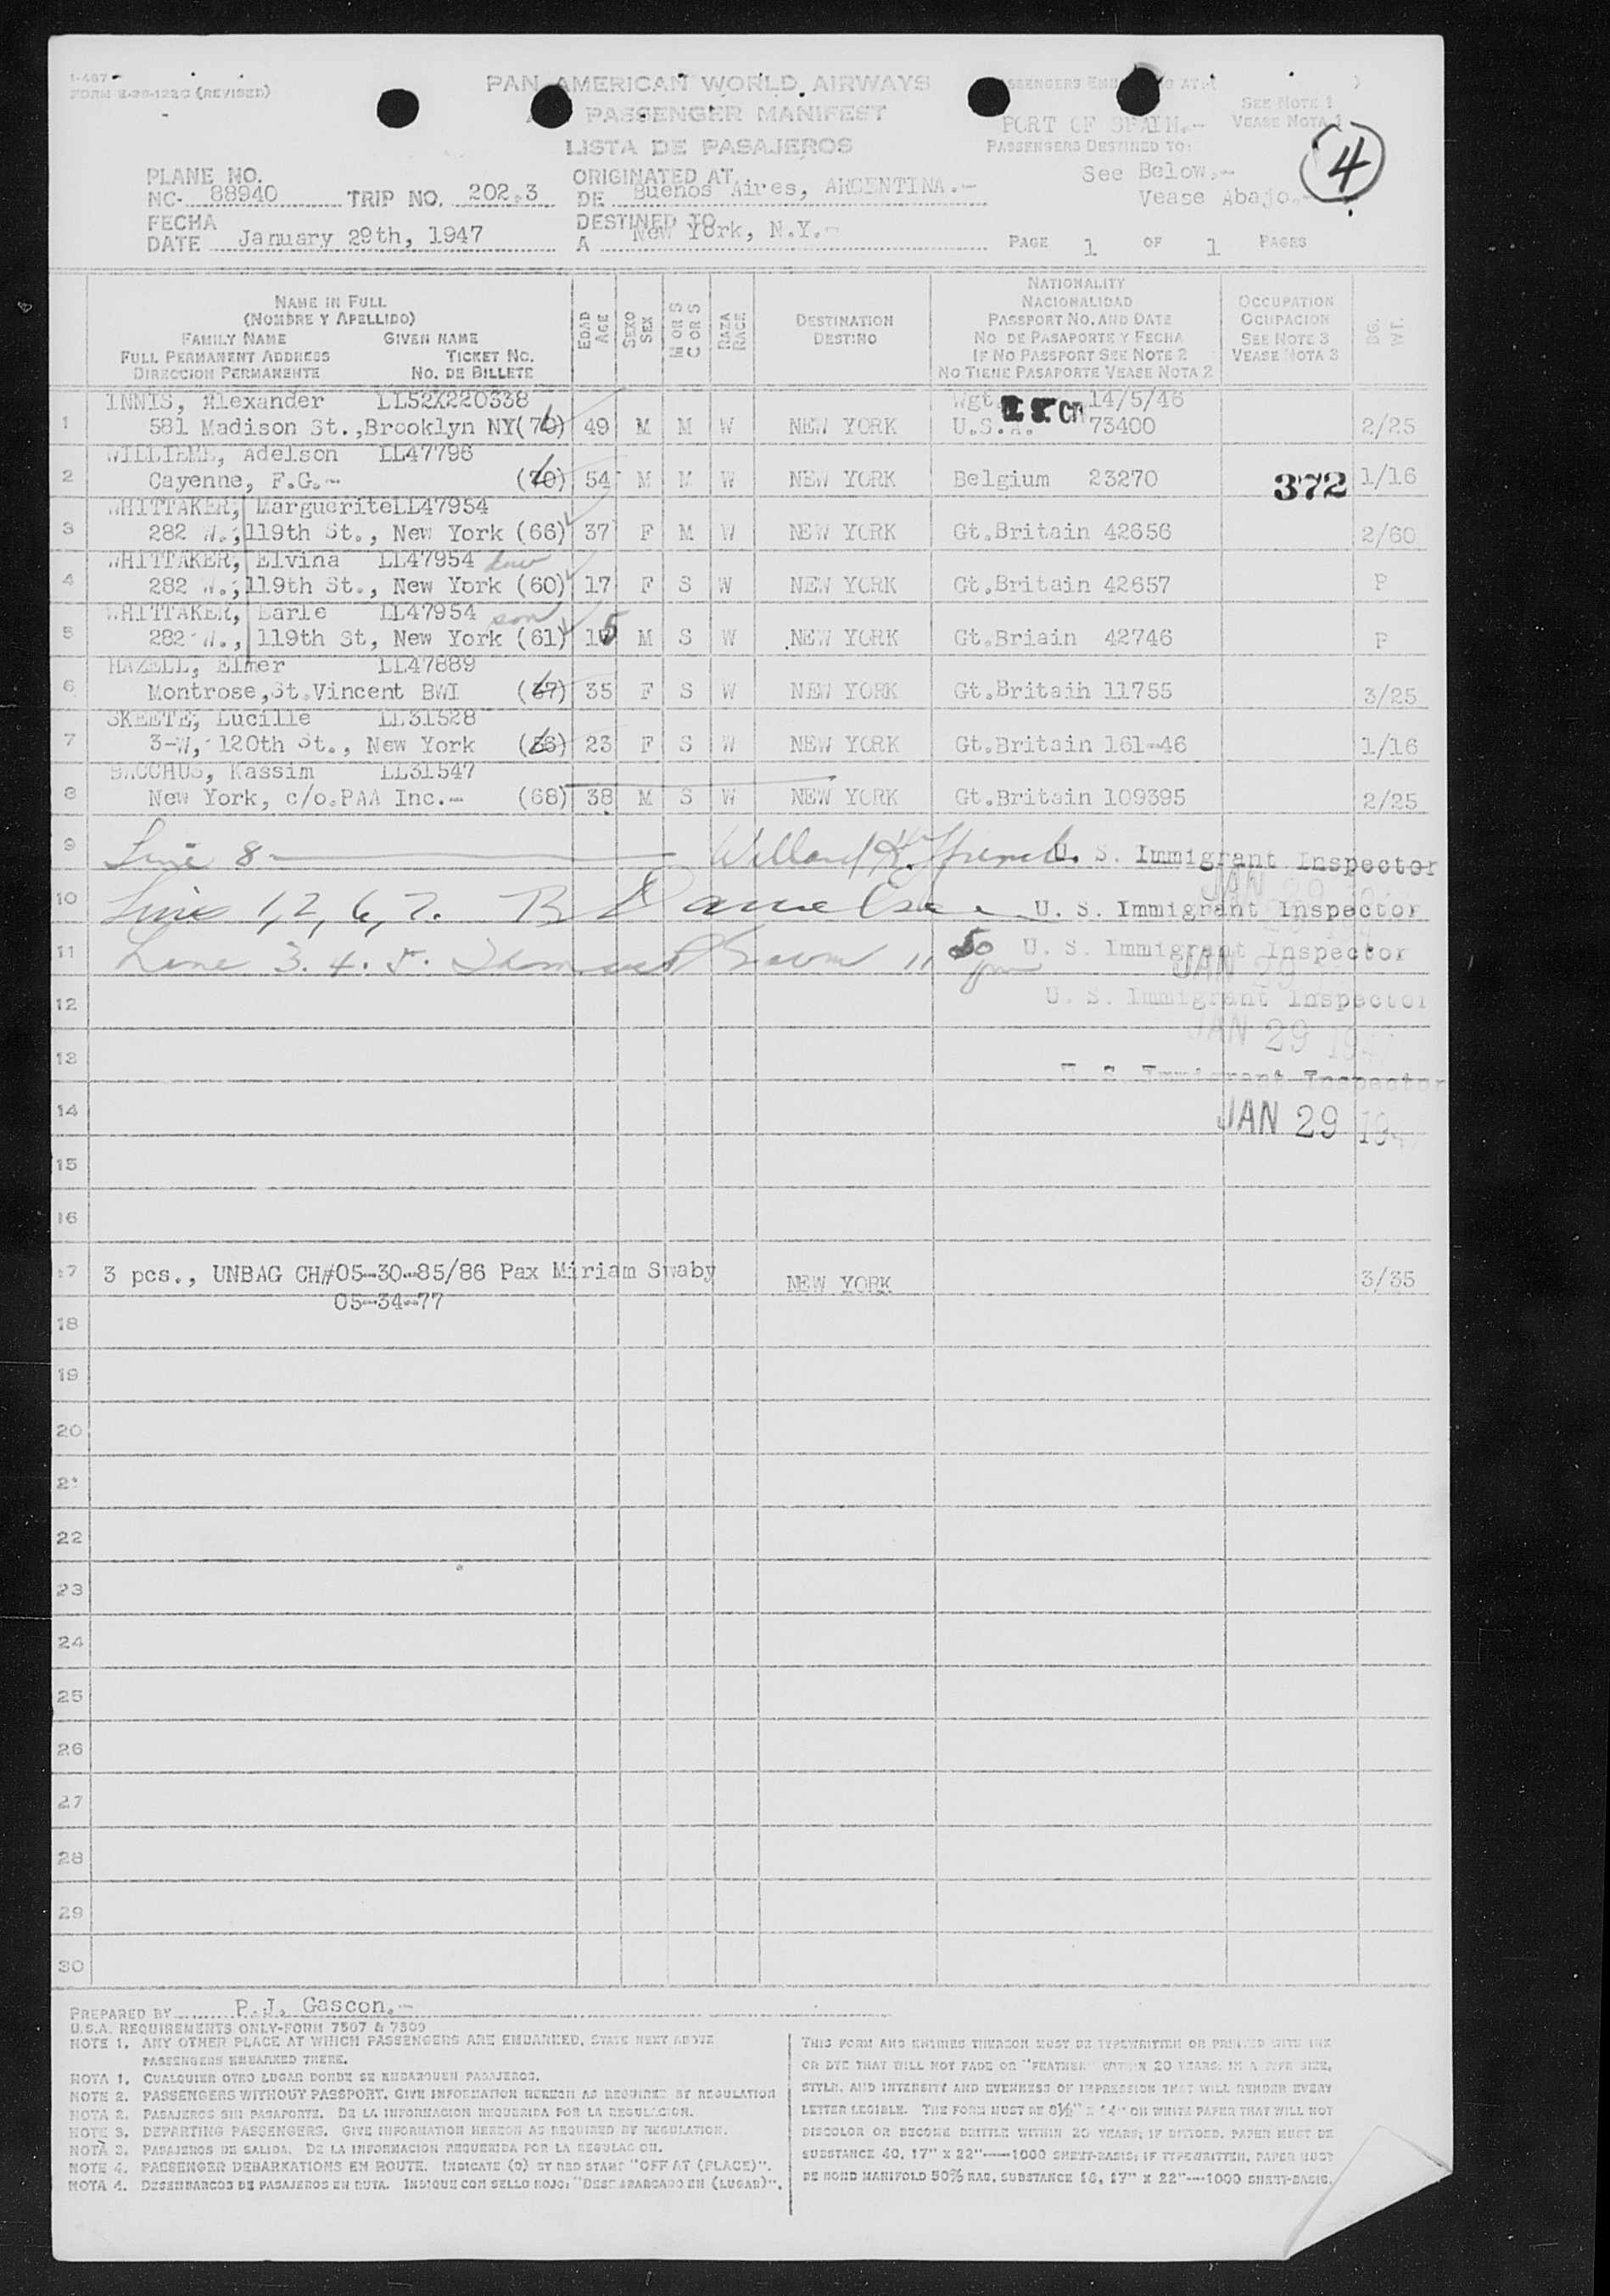 1-467
FORM E-29-122C (REVISED)
PAN AMERICAN WORLD AIRWAYS
PASSENGER MANIFEST
LISTA DE PASAJEROS
PORT OF SPAIN.-
SEE NOTE 1
VEASE NOTA 1
PASSENGERS DESTINED TO:
See Below.-
Vease Abajo.-
4
PLANE NO.
NC- 88940 TRIP NO. 202.3
ORIGINATED AT
DE Buenos Aires, ARGENTINA.-
FECHA
DATE January 29th, 1947
DESTINED TO
A New York, N.Y.-
PAGE 1 OF 1 PAGES
NAME IN FULL
(NOMBRE Y APELLIDO)
FAMILY NAME GIVEN NAME
FULL PERMANENT ADDRESS TICKET NO.
DIRECCION PERMANENTE NO. DE BILLETE
EDAD AGE
SEXO SEX
M OR S
C OR S
RAZA RACE
DESTINATION
DESTINO
NATIONALITY
NACIONALIDAD
PASSPORT NO. AND DATE
NO DE PASAPORTE Y FECHA
IF NO PASSPORT SEE NOTE 2
NO TIENE PASAPORTE VEASE NOTA 2
OCCUPATION
OCUPACION
SEE NOTE 3
VEASE NOTA 3
BG. WT.
INNIS, Alexander LL52X220338 Wgt. 14/5/46
1 581 Madison St.,Brooklyn NY(70) 49 M M W NEW YORK U.S.A. 73400 2/25
WILLIEME, Adelson LL47796
2 Cayenne, F.G.- (70) 54 M M W NEW YORK Belgium 23270 372 1/16
WHITTAKER, MargueriteLL47954
3 282 W., 119th St., New York (66) 37 F M W NEW YORK Gt.Britain 42656 2/60
WHITTAKER, Elvina LL47954 dau
4 282 W., 119th St., New York (60) 17 F S W NEW YORK Gt.Britain 42657 P
WHITTAKER, Earle LL47954 son
5 282 W., 119th St, New York (61) 15 M S W NEW YORK Gt.Briain 42746 P
HAZELL, Elmer LL47889
6 Montrose,St.Vincent BWI 35 F S W NEW YORK Gt.Britain 11755 3/25
SKEETE, Lucille LL31528
7 3-W, 120th St., New York 23 F S W NEW YORK Gt.Britain 161-46 1/16
BACCHUS, Kassim LL31547
8 New York, c/o.PAA Inc.- (68) 38 M S W NEW YORK Gt.Britain 109395 2/25
9 Line 8 U. S. Immigrant Inspector
10 Line 1, 2, 6, 7. U. S. Immigrant Inspector
11 Line 3. 4. 5. 11 50 pm U. S. Immigrant Inspector
JAN 29
12 U. S. Immigrant Inspector
JAN 29 194
13 U. S. Immigrant Inspector
14 JAN 29 194
15
16
17 3 pcs., UNBAG CH#05-30-85/86 Pax Miriam Swaby NEW YORK 3/35
05-34-77
18
19
20
21
22
23
24
25
26
27
28
29
30
PREPARED BY P.J. Gascon.-
U.S.A. REQUIREMENTS ONLY-FORM 7507 & 7509
NOTE 1. ANY OTHER PLACE AT WHICH PASSENGERS ARE EMBARKED, STATE NEXT ABOVE
PASSENGERS EMBARKED THERE.
NOTA 1. CUALQUIER OTRO LUGAR DONDE SE EMBARQUEN PASAJEROS.
NOTE 2. PASSENGERS WITHOUT PASSPORT. GIVE INFORMATION HEREON AS REQUIRED BY REGULATION
NOTA 2. PASAJEROS SIN PASAPORTE. DE LA INFORMACION REQUERIDA POR LA REGULACION.
NOTE 3. DEPARTING PASSENGERS. GIVE INFORMATION HEREON AS REQUIRED BY REGULATION.
NOTA 3. PASAJEROS DE SALIDA. DE LA INFORMACION REQUERIDA POR LA REGULACION.
NOTE 4. PASSENGER DEBARKATIONS EN ROUTE. INDICATE (O) BY RED STAMP "OFF AT (PLACE)".
NOTA 4. DESEMBARCOS DE PASAJEROS EN RUTA. INDIQUE CON SELLO ROJO: "DESEMBARCADO EN (LUGAR)".
THIS FORM AND ENTRIES THEREON MUST BE TYPEWRITTEN OR PRINTED WITH INK
OR DYE THAT WILL NOT FADE OR "FEATHER" WITHIN 20 YEARS, IN A TYPE SIZE,
STYLE, AND INTENSITY AND EVENNESS OF IMPRESSION THAT WILL RENDER EVERY
LETTER LEGIBLE. THE FORM MUST BE 8½" X 14" ON WHITE PAPER THAT WILL NOT
DISCOLOR OR BECOME BRITTLE WITHIN 20 YEARS; IF DITTOED, PAPER MUST BE
SUBSTANCE 40, 17" X 22"----1000 SHEET-BASIS; IF TYPEWRITTEN, PAPER MUST
BE BOND MANIFOLD 50% RAG, SUBSTANCE 16, 17" X 22"----1000 SHEET-BASIS.